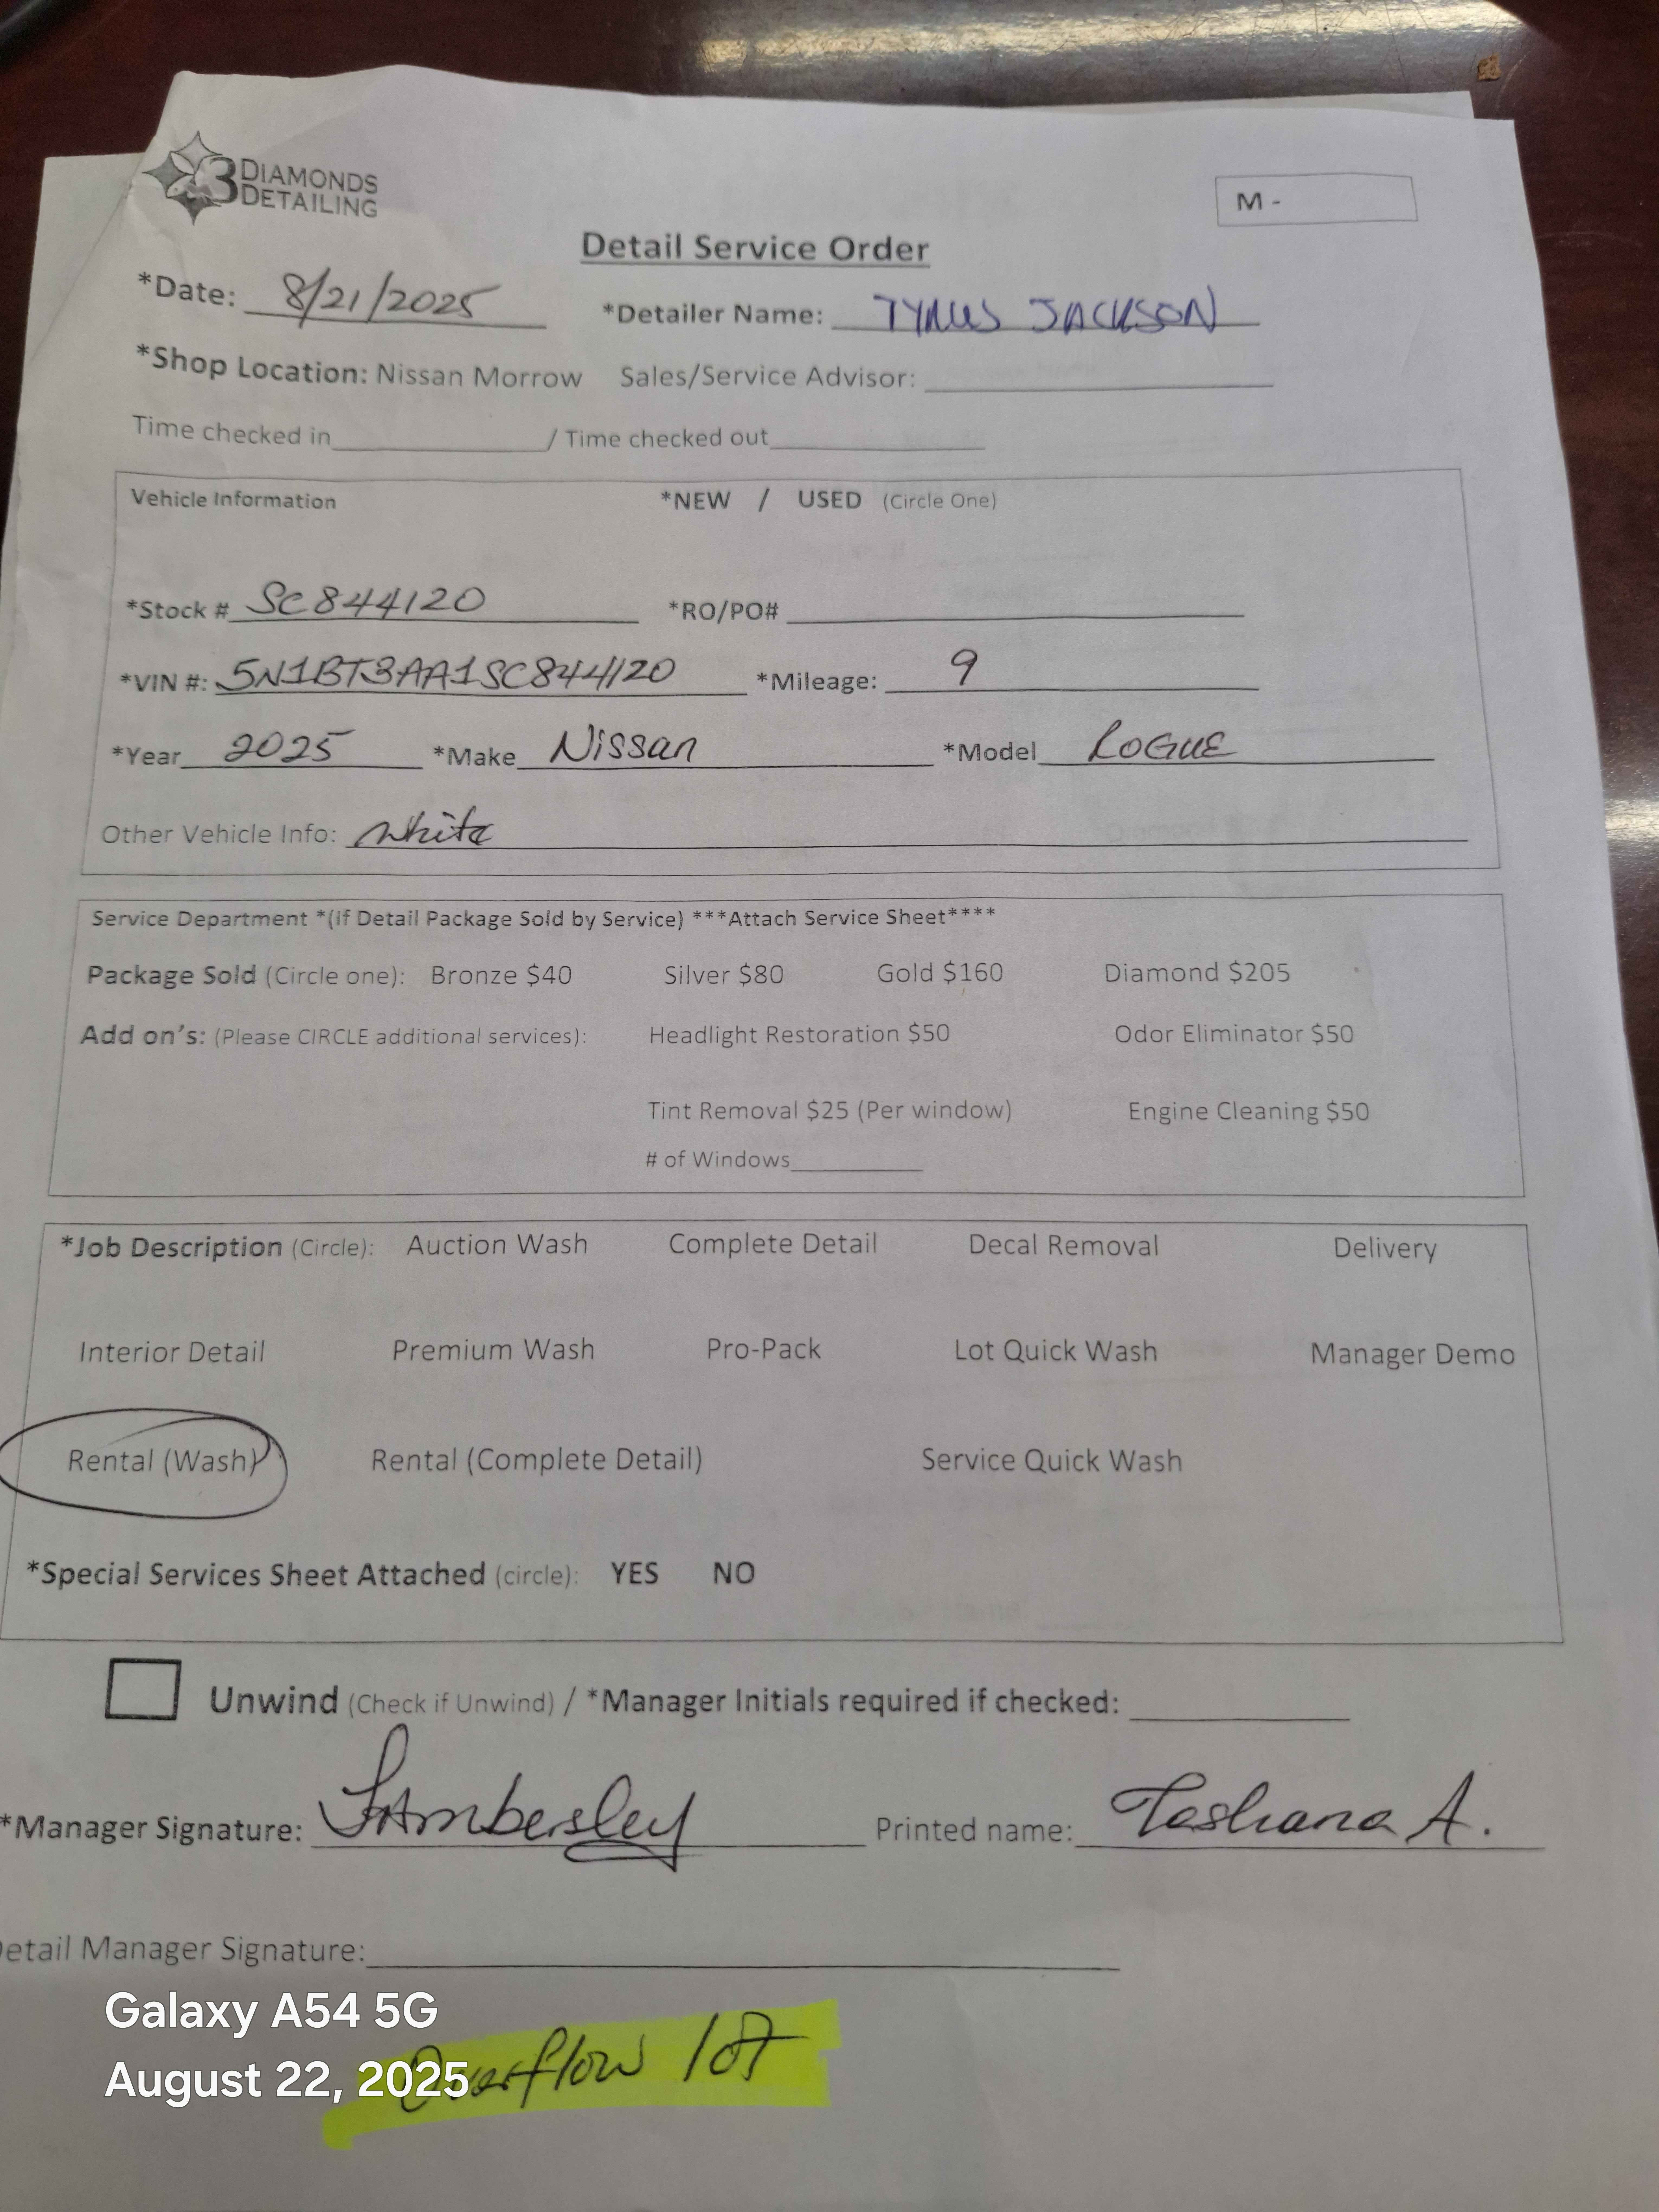 3 DIAMONDS
DETAILING
M -
Detail Service Order
*Date: 8/21/2025 *Detailer Name: TYRUS JACKSON
*Shop Location: Nissan Morrow Sales/Service Advisor:
Time checked in / Time checked out
Vehicle Information *NEW / USED (Circle One)
*Stock # SC844120 *RO/PO#
*VIN #: 5N1BT3AA1SC844120 *Mileage: 9
*Year 2025 *Make Nissan *Model ROGUE
Other Vehicle Info: white
Service Department *(if Detail Package Sold by Service) ***Attach Service Sheet****
Package Sold (Circle one): Bronze $40 Silver $80 Gold $160 Diamond $205
Add on's: (Please CIRCLE additional services): Headlight Restoration $50 Odor Eliminator $50
Tint Removal $25 (Per window) Engine Cleaning $50
# of Windows
*Job Description (Circle): Auction Wash Complete Detail Decal Removal Delivery
Interior Detail Premium Wash Pro-Pack Lot Quick Wash Manager Demo
Rental (Wash) Rental (Complete Detail) Service Quick Wash
*Special Services Sheet Attached (circle): YES NO
Unwind (Check if Unwind) / *Manager Initials required if checked:
*Manager Signature: Printed name: Tashana A.
etail Manager Signature:
Overflow lot
Galaxy A54 5G
August 22, 2025